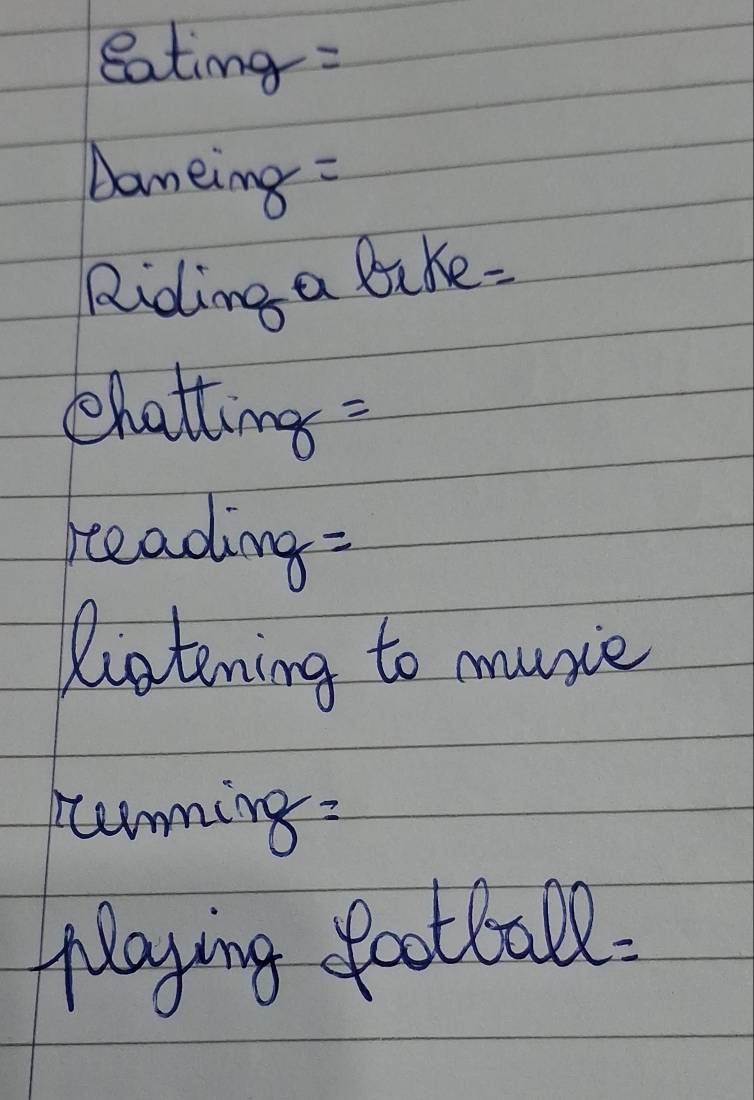 Eating =
Dancing =
Riding a bike =
Chatting =
reading =
listening to music
running =
playing football =